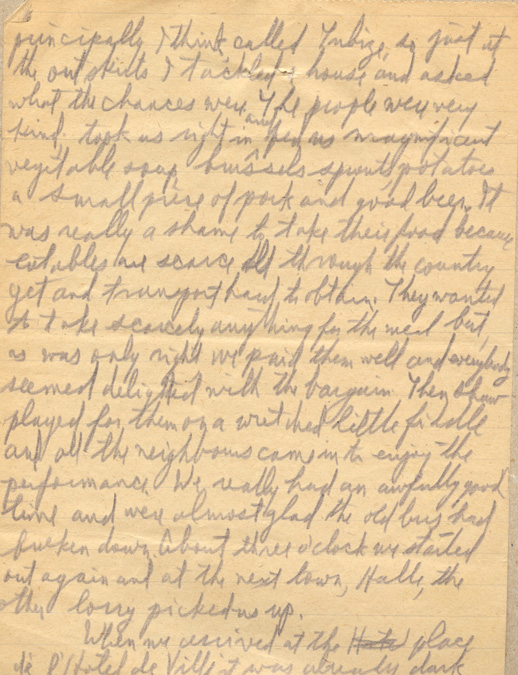 principally I think called Tubize, so just at
the outskirts I tackled a house and asked
what the chances were. The people were very
kind, took us right in and fed us magnificent
vegitable soup brussels sprouts potatoes
a small piece of pork and good beer. It
was really a shame to take their food because
eatables are scarce all through the country
yet and transport hard to obtain. They wanted
to take scarcely anything for the meal but,
as was only right we paid them well and everybody
seemed delighted with the bargain. Then Shaw
played for them on a wretched little fiddle
and all the neighbours came in to enjoy the
performance. We really had an awfully good
time and were almost glad the old bus had
broken down. About three o'clock we started
out again and at the next town, Halle, the
other lorry picked us up.
When we arrived at the place
de l'Hotel de Ville it was already dark